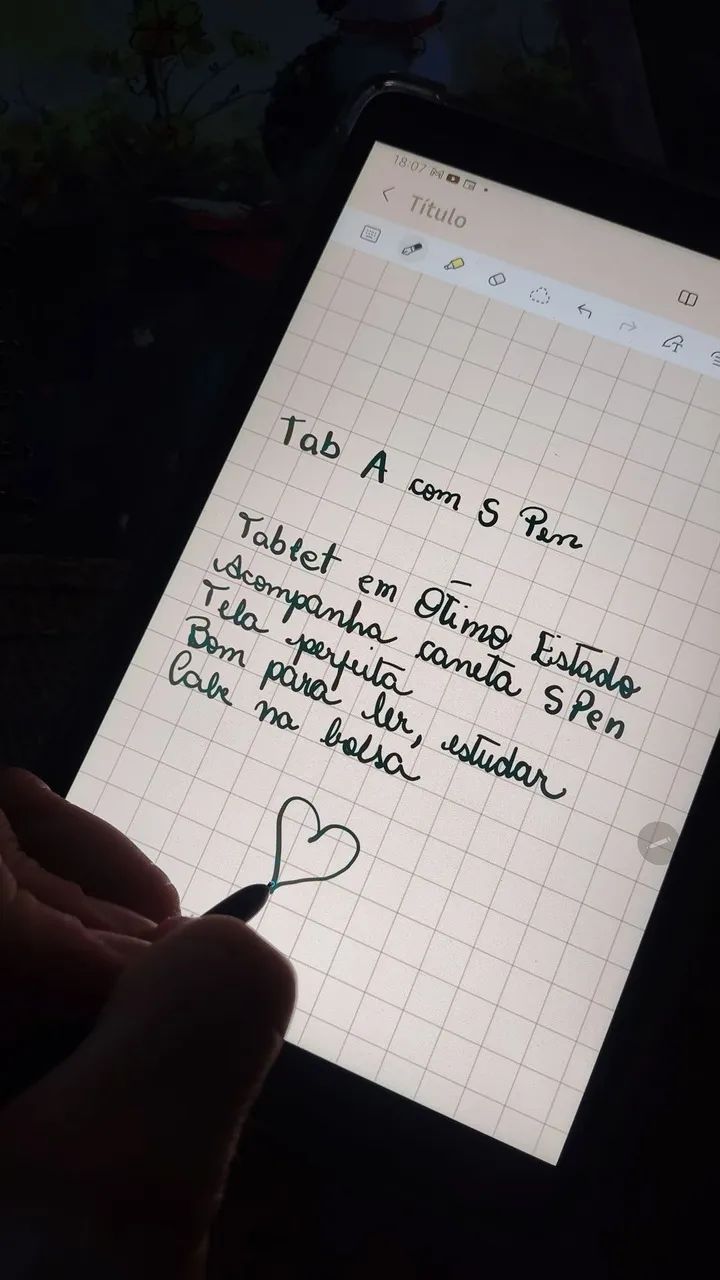 18:07
Título
Tab A com S Pen
Tablet em Ótimo Estado
Acompanha caneta S Pen
Tela perfeita
Bom para ler, estudar
Cabe na bolsa